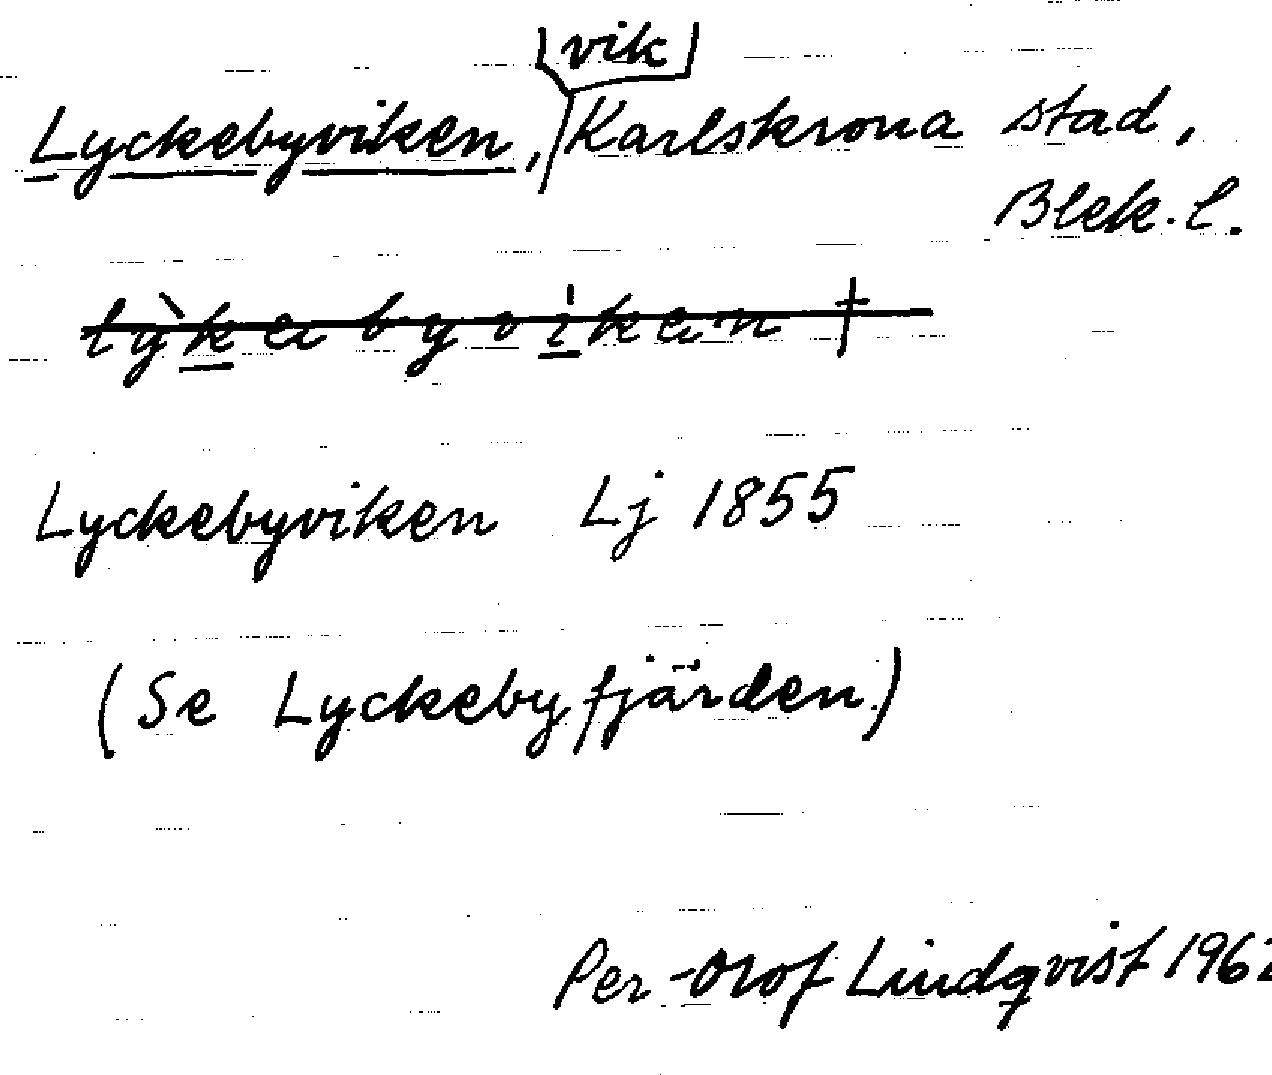 Lyckebyviken, [vik] Karlskrona stad,
Blek. l.
Lyckebyviken Lj 1855
(Se Lyckebyfjärden.)
Per-Olof Lindqvist 1962